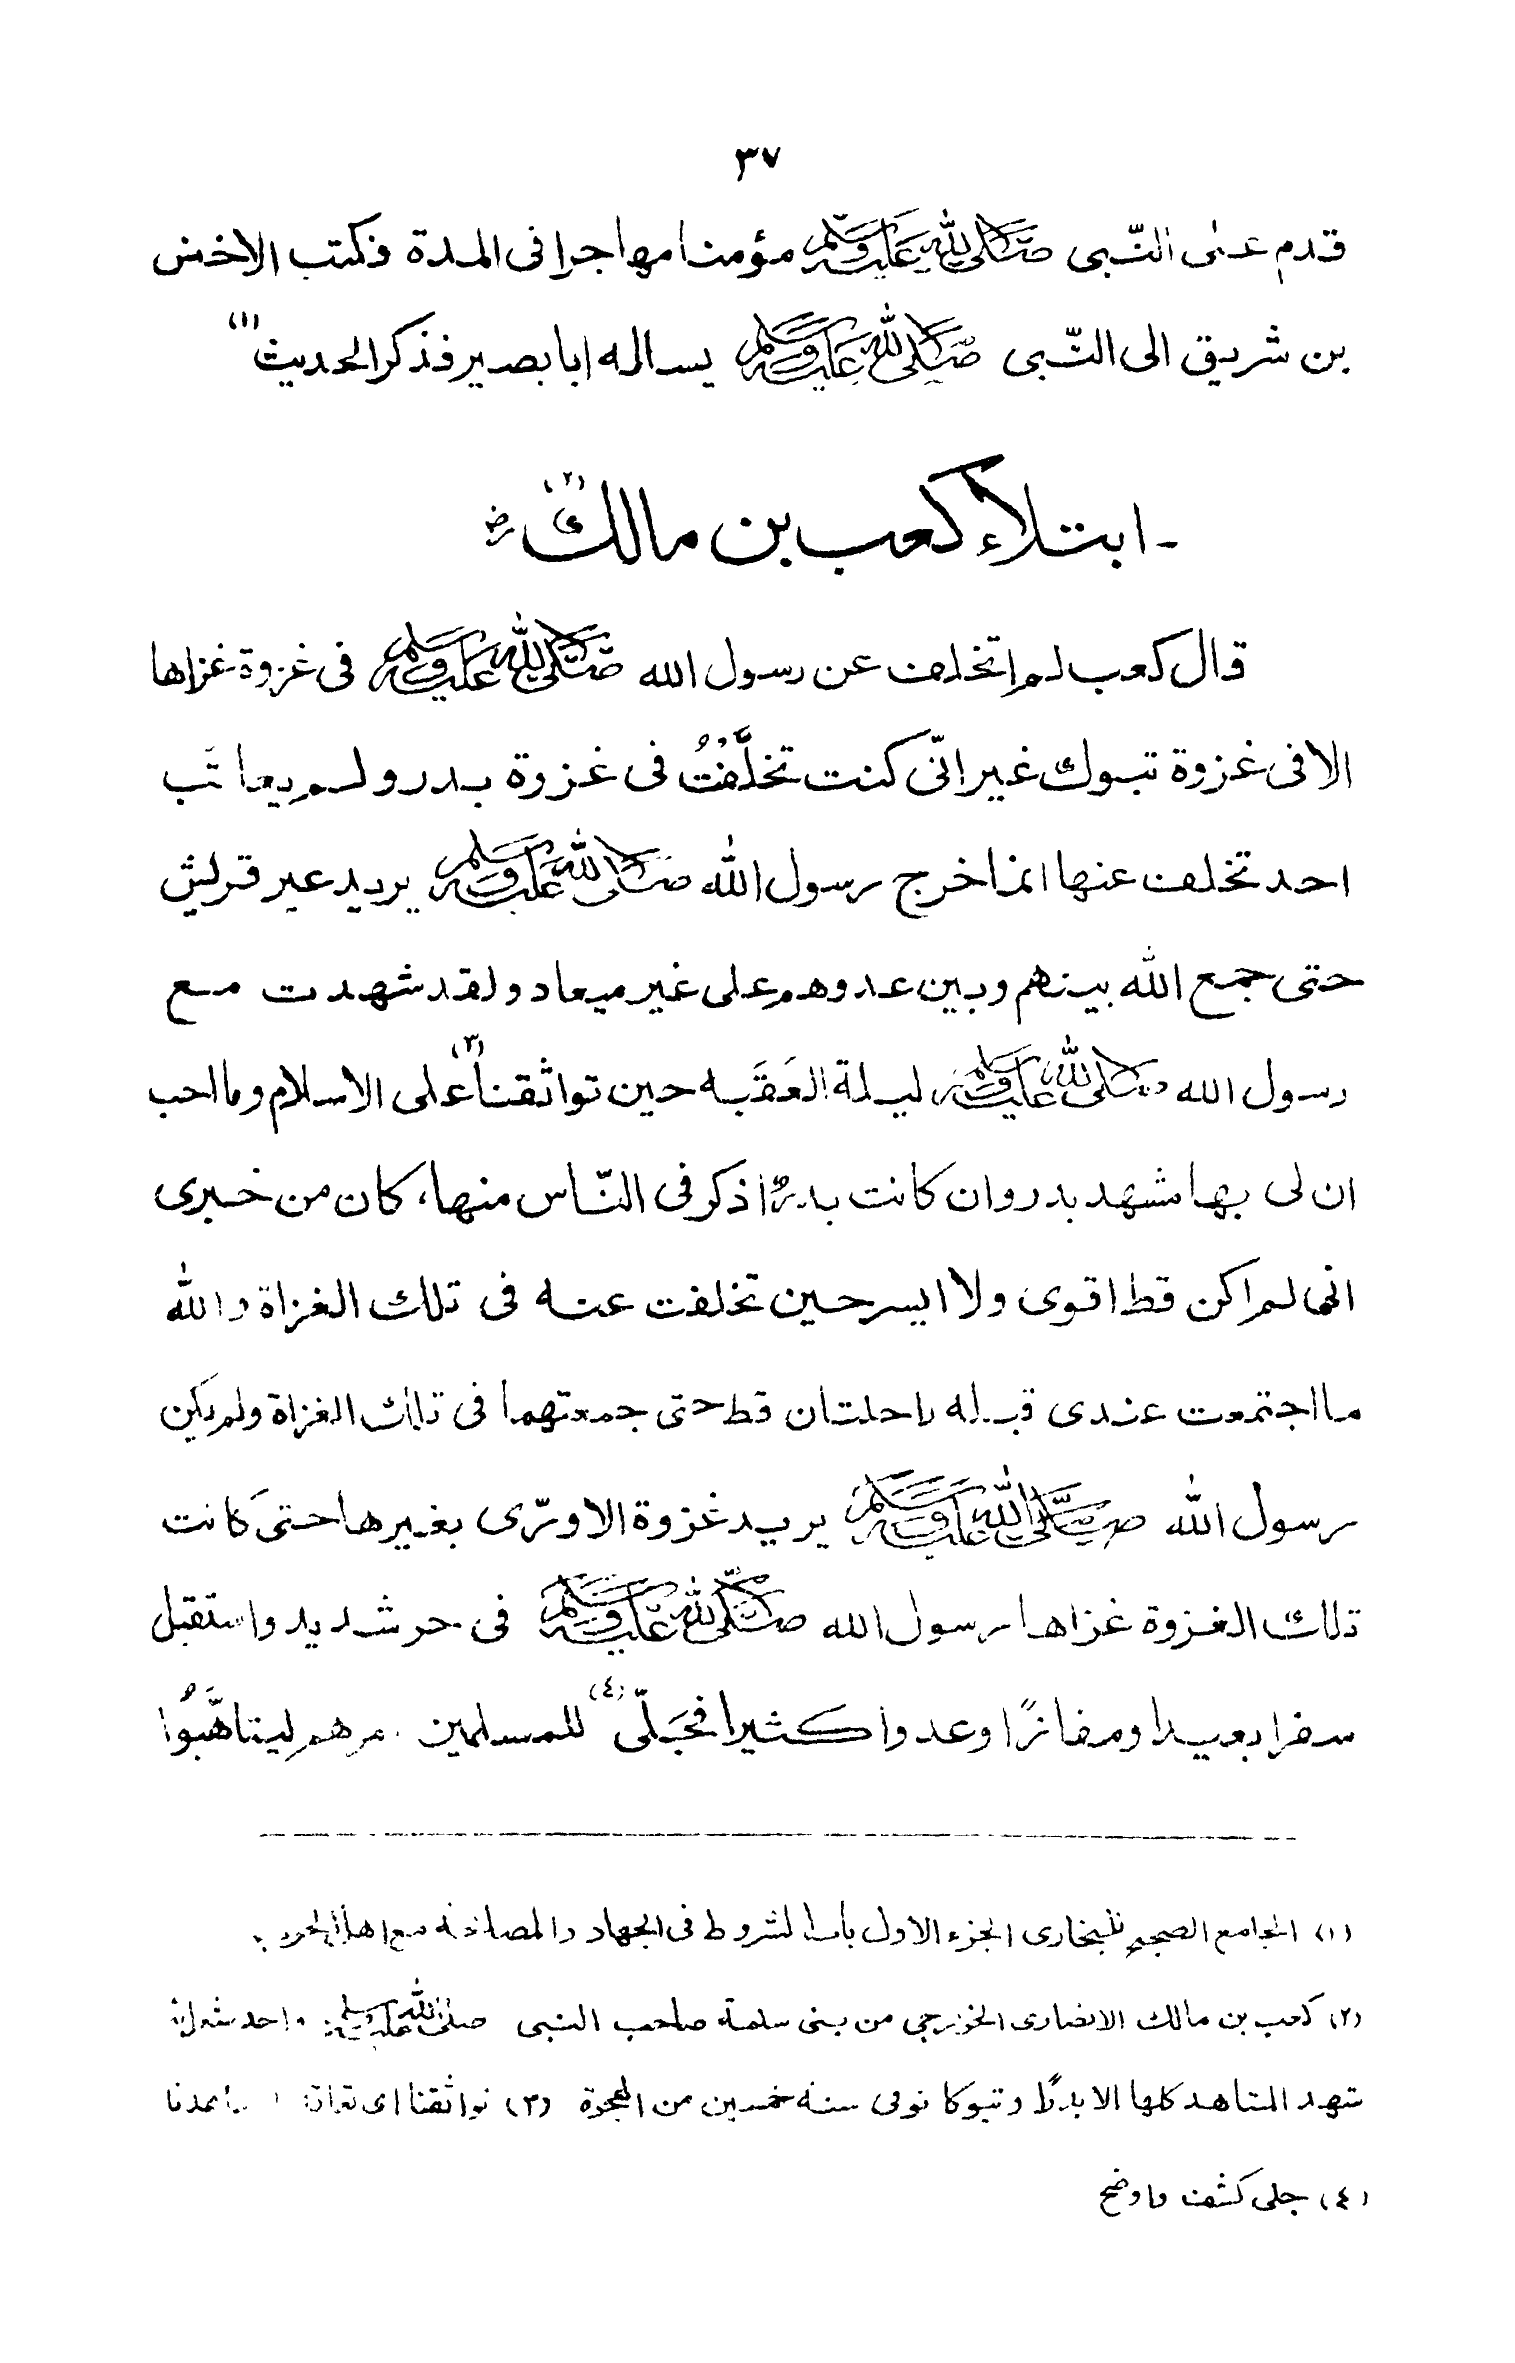 ٣٧
قدم على النّبى صلى الله عليه وسلم مؤمنا مهاجرا فى المدة فكتب الاخنس
بن شريق الى النّبى صلى الله عليه وسلم يساله ابا بصير فذكر الحديث (١)
ـ ابتلاء كعب بن مالك (٢) رضـ
قال كعب لم اتخلف عن رسول الله صلى الله عليه وسلم فى غزوة غزاها
الا فى غزوة تبوك غير انّى كنت تخلَّفْتُ فى غزوة بدر ولم يعاتَب
احد تخلف عنها انما خرج رسول الله صلى الله عليه وسلم يريد عير قريش
حتى جمع الله بينهم وبين عدوهم على غير ميعاد ولقد شهدت مع
رسول الله صلى الله عليه وسلم ليلة العَقَبه حين تواثقنا (٣) على الاسلام وما احب
ان لى بها مشهد بدر وان كانت بدرٌ اذكر فى النّاس منها، كان من خبرى
انى لم اكن قط اقوى ولا ايسر حين تخلفت عنه فى تلك الغزاة والله
ما اجتمعت عندى قبله راحلتان قط حتى جمعتهما فى تلك الغزاة ولم يكن
رسول الله صلى الله عليه وسلم يريد غزوة الا ورّى بغيرها حتى كانت
تلك الغزوة غزاها رسول الله صلى الله عليه وسلم فى حر شديد واستقبل
سفرا بعيدا ومفازًا وعدوا كثيرا فجَلّى (٤) للمسلمين امرهم ليتاهَّبُوا
(١) الجامع الصحيح للبخارى الجزء الاول باب الشروط فى الجهاد والمصالحة مع اهل الحرب.
(٢) كعب بن مالك الانصارى الخزرجى من بنى سلمة صاحب النبى صلى الله عليه وسلم واحد شعرائه
شهد المشاهد كلها الا بدرًا وتبوكا توفى سنة خمسين من الهجرة (٣) تواثقنا اى
(٤) جلى كشف واوضح